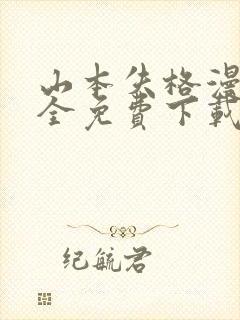 山本失格漫
全免费下载
纪毓君